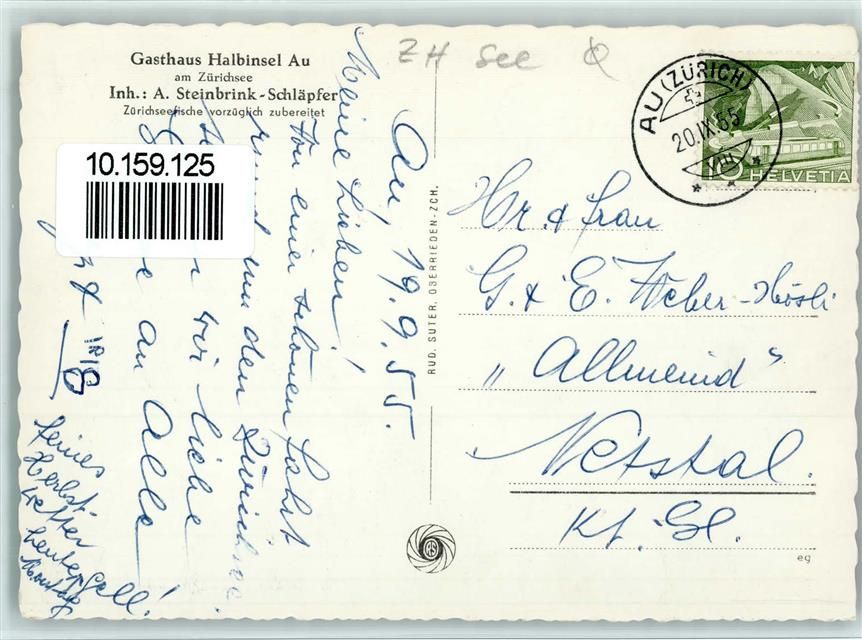 Gasthaus Halbinsel Au
am Zürichsee
Inh.: A. Steinbrink-Schläpfer
Zürichseefische vorzüglich zubereitet
ZH See
10.159.125
Au, 19.9.55.
Meine Lieben!
Von einer schönen Fahrt
rund um den Zürichsee
wir liebe
an Alle!
feines
Herbst-
wetter
heute
Montag
RUD. SUTER, OBERRIEDEN-ZCH.
AU (ZÜRICH)
20.IX.55
VIII
10 HELVETIA
Hr. & Frau
G. & E. Weber-Hösli
"Allmeind"
Netstal.
Kt. Gl.
RS
eg